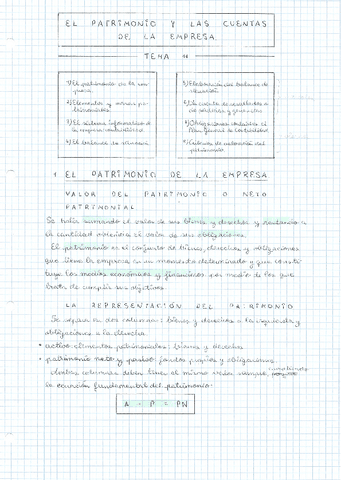 EL PATRIMONIO Y LAS CUENTAS
DE LA EMPRESA
TEMA
1) El patrimonio de la em-
presa.
2) Elementos y masas pa-
trimoniales.
3) El sistema informativo de
la empresa: contabilidad
4) El balance de situación
5) Elaboración del balance de
situación
6) La cuenta de resultados o
de pérdidas y ganancias
7) Obligaciones contables: el
Plan General de Contabilidad
8) Criterios de valoración del
patrimonio
1 EL PATRIMONIO DE LA EMPRESA
VALOR DEL PATRIMONIO O NETO
PATRIMONIAL
Se halla sumando el valor de sus bienes y derechos y restando a
la cantidad anterior el valor de sus obligaciones.
El patrimonio es el conjunto de bienes, derechos y obligaciones
que tiene la empresa en un momento determinado y que consti-
tuye los medios económicos y financieros por medio de los que
trata de cumplir sus objetivos.
LA REPRESENTACIÓN DEL PATRIMONIO
Se separa en dos columnas: bienes y derechos a la izquierda y
obligaciones a la derecha.
• activo: elementos patrimoniales: bienes y derechos
• patrimonio neto y pasivo: fondos propios y obligaciones
Ambas columnas deben tener el mismo valor siempre, cumpliendo
la ecuación fundamental del patrimonio:
A - P = PN